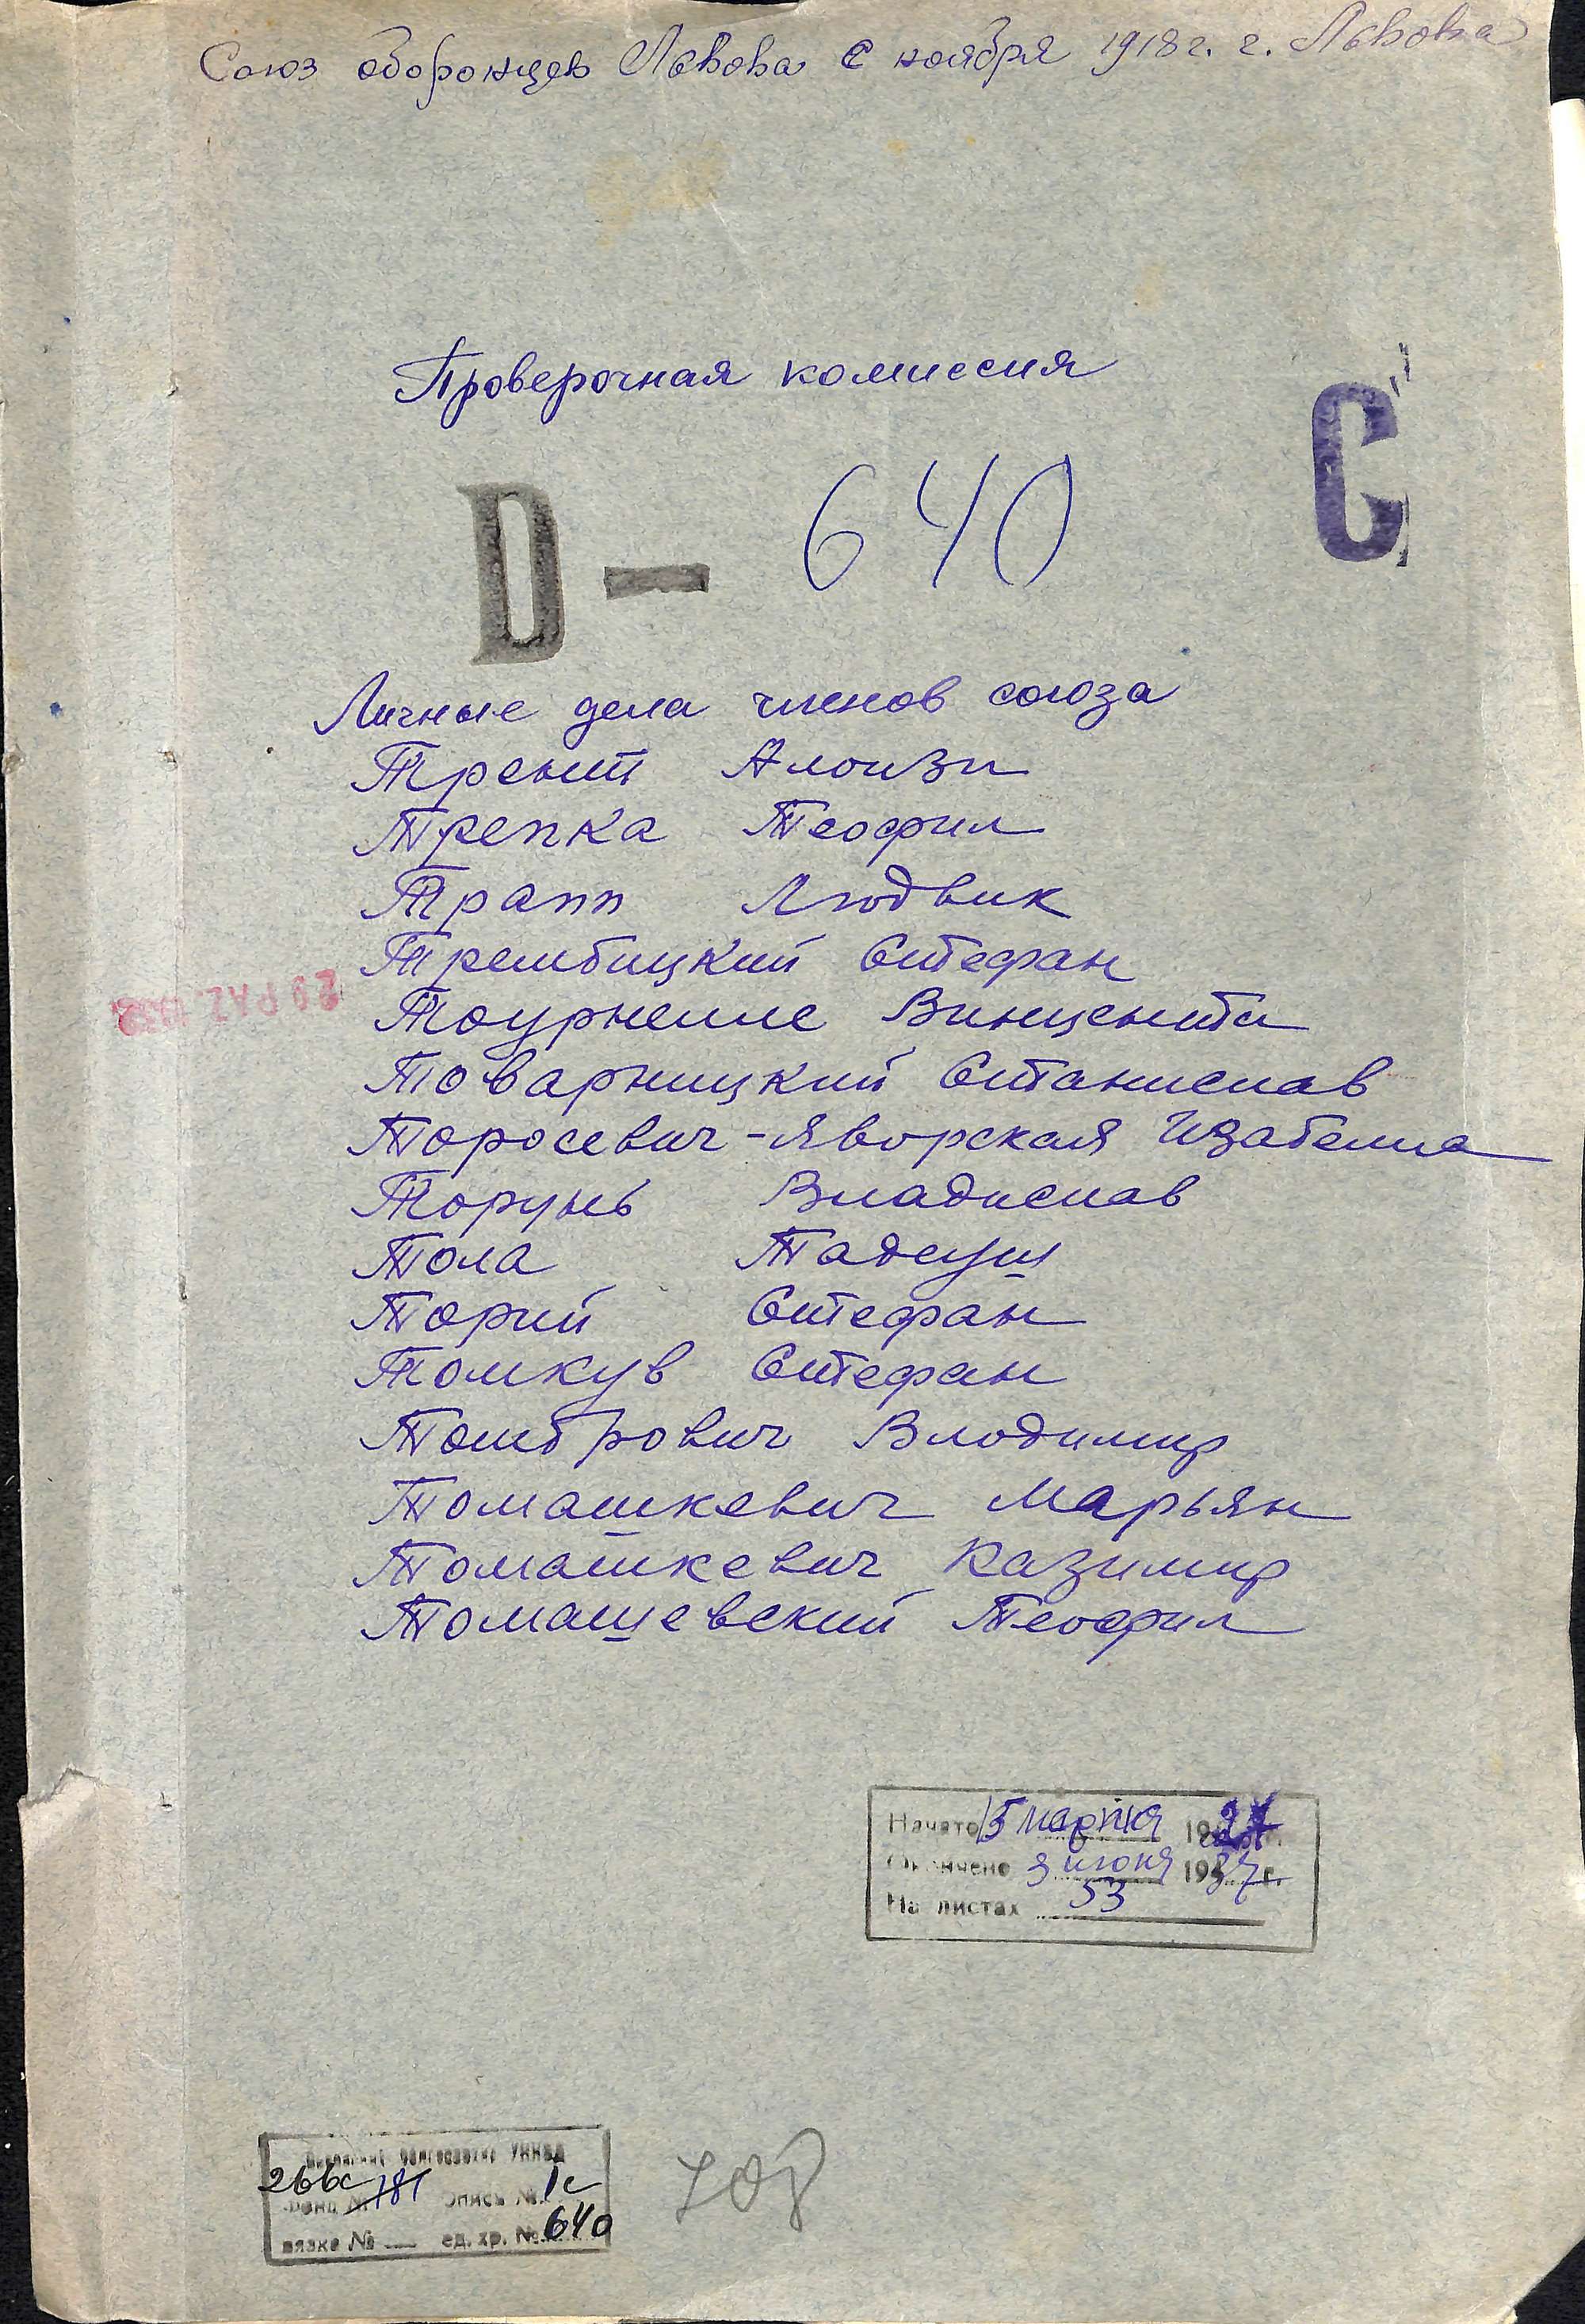 Союз оборонцев Львова с ноября 1918 г. г. Львова
Проверочная комиссия
С
D — 640
Личные дела членов союза
Трешт Алоизи
Трепка Теофил
Трапп Людвик
Трембицкий Стефан
Тоурнелле Винцента
Товарницкий Станислав
Торосевич-Яворская Изабелла
Торунь Владислав
Тола Тадеуш
Торий Стефан
Томкув Стефан
Томбрович Влодимир
Томашкевич Марьян
Томашкевич Казимир
Томашевский Теофил
29 PAZ.
Начато 15 марта 19
Окончено 3 июня 1937 г.
На листах 53
УНКВД
266с 181 Опись № 1с
вязка № — ед. хр. № 640
708